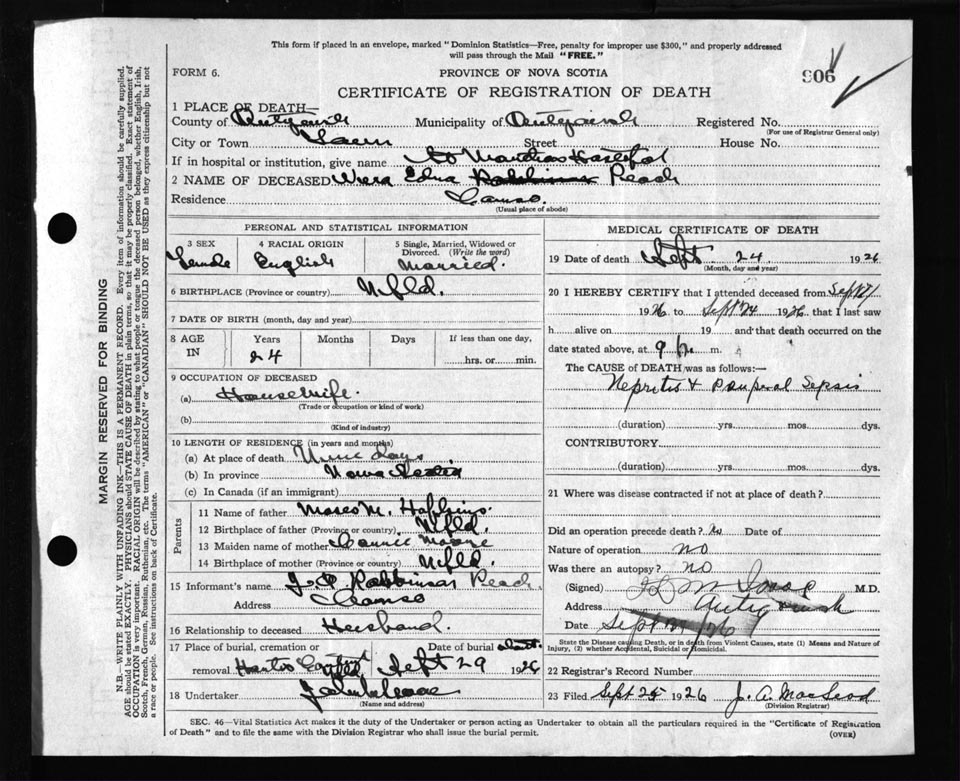 This form if placed in an envelope, marked "Dominion Statistics—Free, penalty for improper use $300," and properly addressed
will pass through the Mail "FREE."
FORM 6.
PROVINCE OF NOVA SCOTIA
906
CERTIFICATE OF REGISTRATION OF DEATH
1 PLACE OF DEATH—
County of Antigonish Municipality of Antigonish Registered No.
(For use of Registrar General only)
City or Town Town Street House No.
If in hospital or institution, give name St Marthas Hospital
2 NAME OF DECEASED Edna Robbinson Reach
Residence Canso.
(Usual place of abode)
PERSONAL AND STATISTICAL INFORMATION
3 SEX 4 RACIAL ORIGIN 5 Single, Married, Widowed or Divorced. (Write the word)
Female English Married.
6 BIRTHPLACE (Province or country) Nfld.
7 DATE OF BIRTH (month, day and year)
8 AGE IN Years Months Days If less than one day,
24 hrs. or min.
9 OCCUPATION OF DECEASED
(a) Housewife.
(Trade or occupation or kind of work)
(b)
(Kind of industry)
10 LENGTH OF RESIDENCE (in years and months)
(a) At place of death days
(b) In province Nova Scotia
(c) In Canada (if an immigrant)
Parents
11 Name of father M. Hopkins.
12 Birthplace of father (Province or country) Nfld.
13 Maiden name of mother Moore
14 Birthplace of mother (Province or country) Nfld.
15 Informant's name Robbinson Reach
Address Canso
16 Relationship to deceased Husband.
17 Place of burial, cremation or Date of burial
removal Sept 29 1926
18 Undertaker
(Name and address)
MEDICAL CERTIFICATE OF DEATH
19 Date of death Sept. 24 1926
(Month, day and year)
20 I HEREBY CERTIFY that I attended deceased from Sept 21
1926 to Sept 24 1926 that I last saw
h alive on 19 and that death occurred on the
date stated above, at 9 m.
The CAUSE OF DEATH was as follows:—
Nephritis & Puerperal Sepsis
(duration) yrs. mos. dys.
CONTRIBUTORY
(duration) yrs. mos. dys.
21 Where was disease contracted if not at place of death?
Did an operation precede death? No Date of
Nature of operation no
Was there an autopsy? no
(Signed) M.D.
Address Antigonish
Date Sept
State the Disease causing Death, or in death from Violent Causes, state (1) Means and Nature of
Injury, (2) whether Accidental, Suicidal or Homicidal.
22 Registrar's Record Number
23 Filed Sept 25 1926 J. A. MacLeod
(Division Registrar)
SEC. 46—Vital Statistics Act makes it the duty of the Undertaker or person acting as Undertaker to obtain all the particulars required in the "Certificate of Registration
of Death" and to file the same with the Division Registrar who shall issue the burial permit.
(OVER)
MARGIN RESERVED FOR BINDING
N.B.—WRITE PLAINLY WITH UNFADING INK—THIS IS A PERMANENT RECORD. Every item of information should be carefully supplied.
AGE should be stated EXACTLY. PHYSICIANS should STATE CAUSE OF DEATH in plain terms, so that it may be properly classified. Exact statement of
OCCUPATION is very important. RACIAL ORIGIN will be described by stating to what people or tongue the deceased person belonged, whether English, Irish,
Scotch, French, German, Russian, Ruthenian, etc. The terms "AMERICAN" or "CANADIAN" SHOULD NOT BE USED as they express citizenship but not
a race or people. See instructions on back of Certificate.